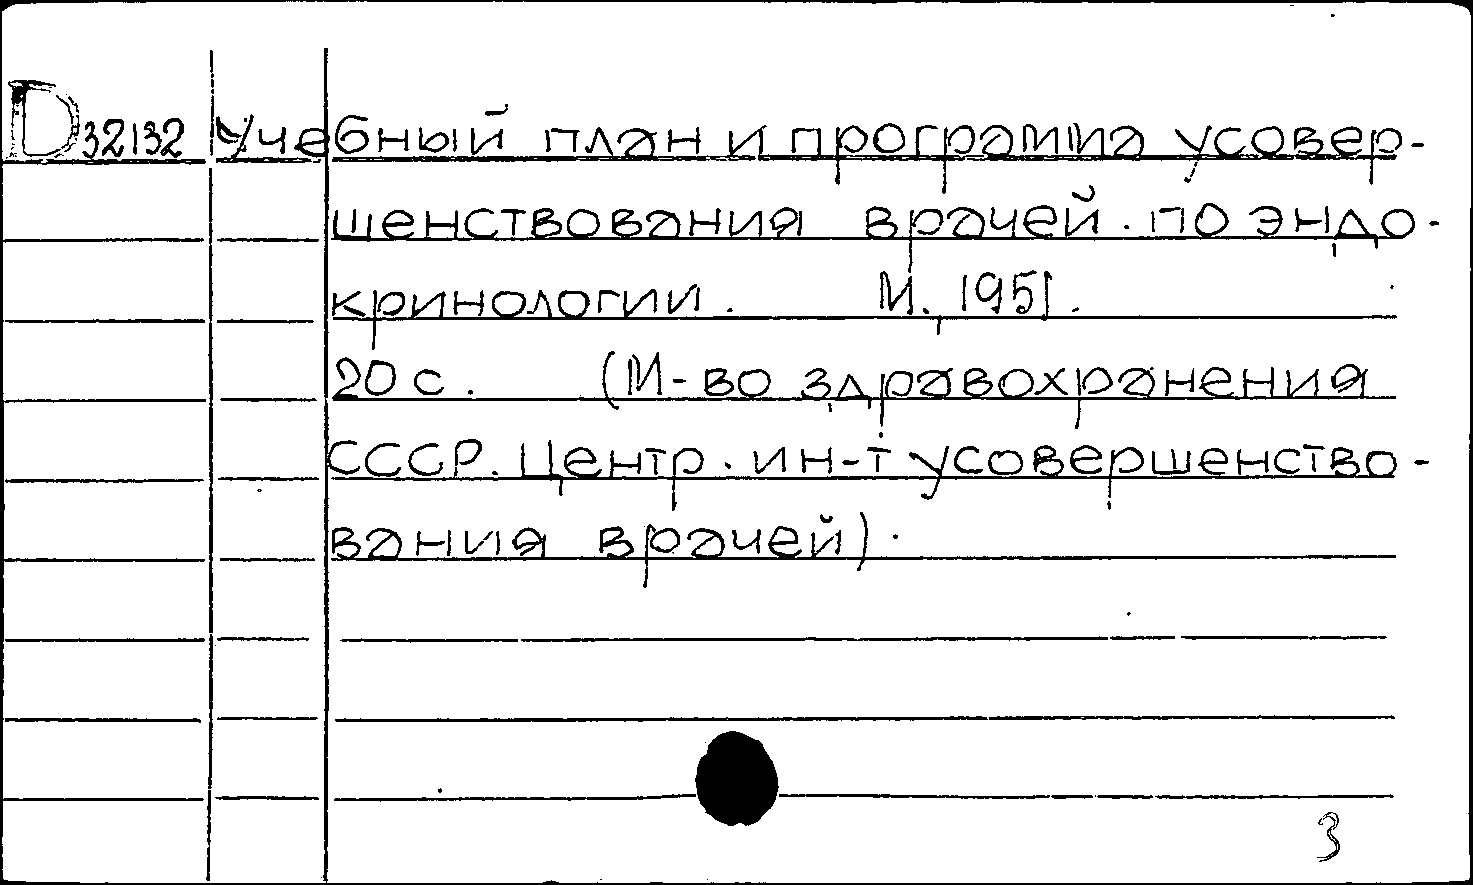 D 32132 Учебный план и программа усовер-
шенствования врачей. по эндо-
кринологии. М., 1951.
20 с. (М-во здравохранения
СССР. Центр. ин-т усовершенство-
вания врачей).
3